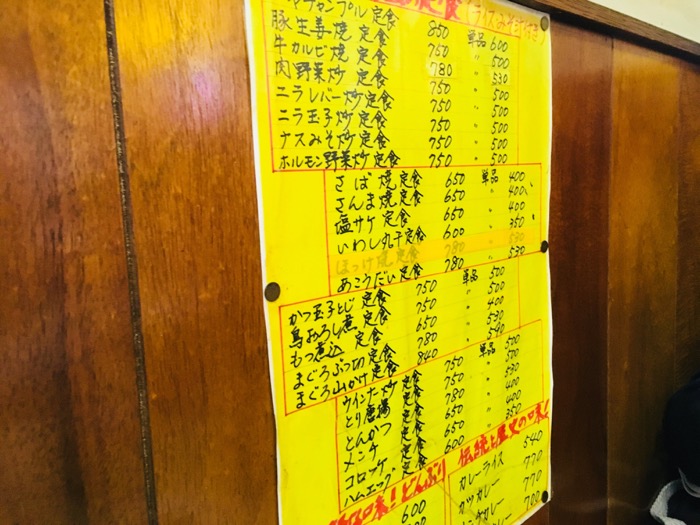 ヤチャンプル定食 850 単品 600
豚生姜焼定食 750 〃 500
牛カルビ焼定食 780 〃 530
肉野菜炒定食 750 〃 500
ニラレバー炒定食 750 〃 500
ニラ玉子炒定食 750 〃 500
ナスみそ炒定食 750 〃 500
ホルモン野菜炒定食 750 〃 500
(ライスみそ汁付き)
さば焼定食 650 単品 400
さんま焼定食 650 〃 400
塩サケ定食 650 〃 400
いわし丸干定食 600 〃 350
ほっけ焼定食 780 〃 530
あこうだい定食 780 〃 530
かつ玉子とじ定食 750 単品 500
鳥おろし煮定食 750 〃 500
もつ煮込定食 650 〃 400
まぐろぶつ切定食 780 〃 530
まぐろ山かけ定食 840 〃 590
ウインナー炒定食 750 単品 500
とり唐揚定食 750 〃 500
とんかつ定食 780 〃 530
メンチ定食 650 〃 400
コロッケ定食 650 〃 400
ハムエッグ定食 600 〃 350
口味!どんぶり
600
伝統と歴史の口味!
カレーライス 540
カツカレー 770
メンチカレー 700